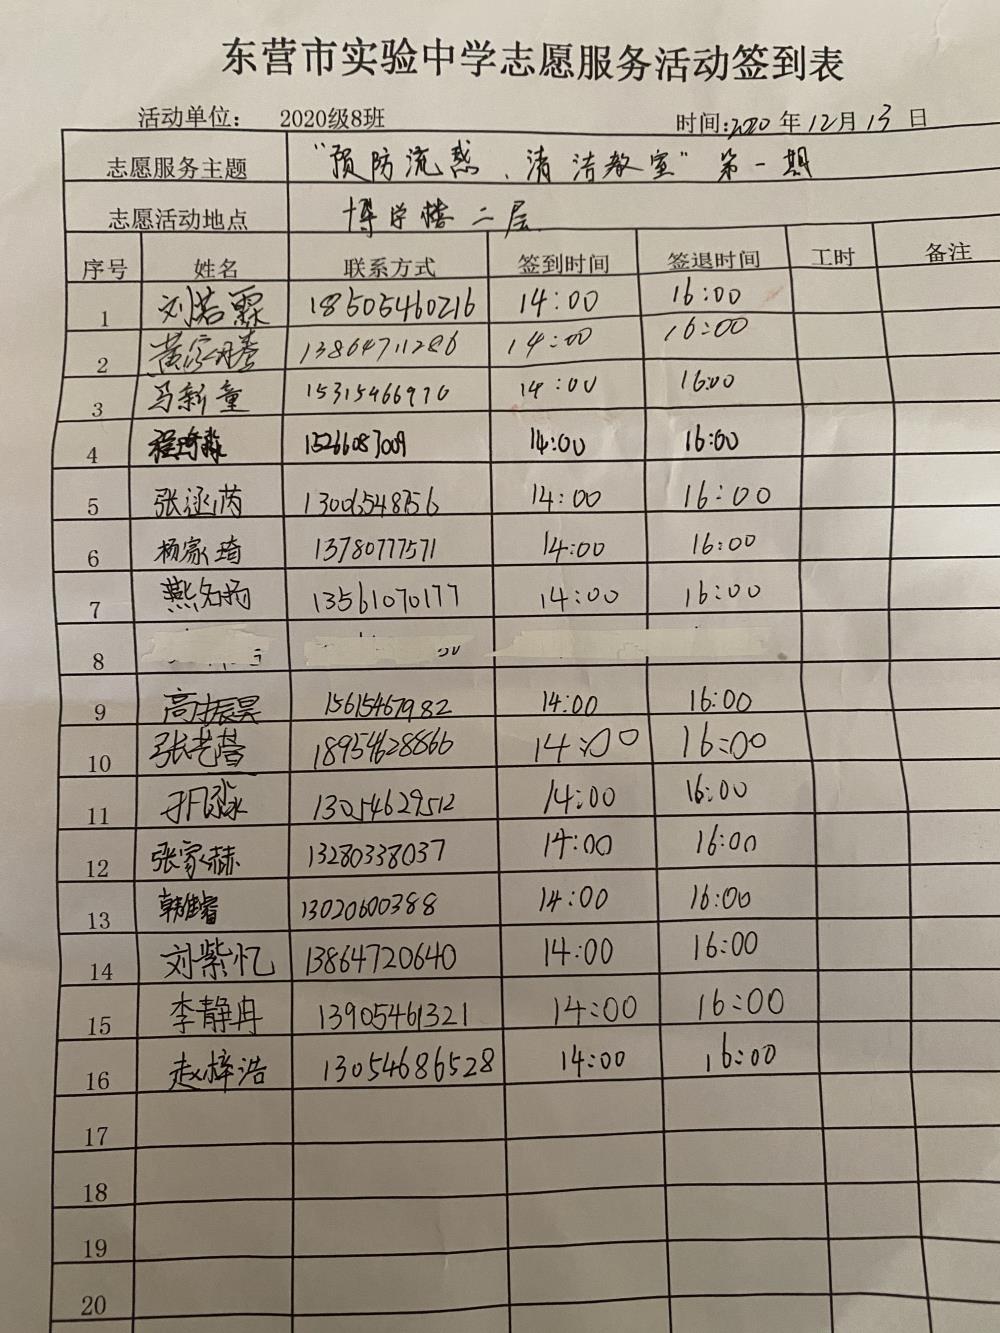 东营市实验中学志愿服务活动签到表
活动单位： 2020级8班 时间:2020年12月13日
志愿服务主题 “预防流感、清洁教室”第一期
志愿活动地点 博学楼二层
序号 姓名 联系方式 签到时间 签退时间 工时 备注
1 刘若霖 18505460216 14:00 16:00
2 13864711286 14:00 16:00
3 马新童 15315466970 14:00 16:00
4 15266087009 14:00 16:00
5 14:00 16:00
6 杨家琦 13780777571 14:00 16:00
7 燕名扬 13561070177 14:00 16:00
8
9 高振昊 15615467982 14:00 16:00
10 张艺蓉 18954628866 14:00 16:00
11 13054629512 14:00 16:00
12 张家赫 13280338037 14:00 16:00
13 韩睿 13020600388 14:00 16:00
14 刘紫忆 13864720640 14:00 16:00
15 李静冉 13905461321 14:00 16:00
16 赵梓浩 13054686528 14:00 16:00
17
18
19
20